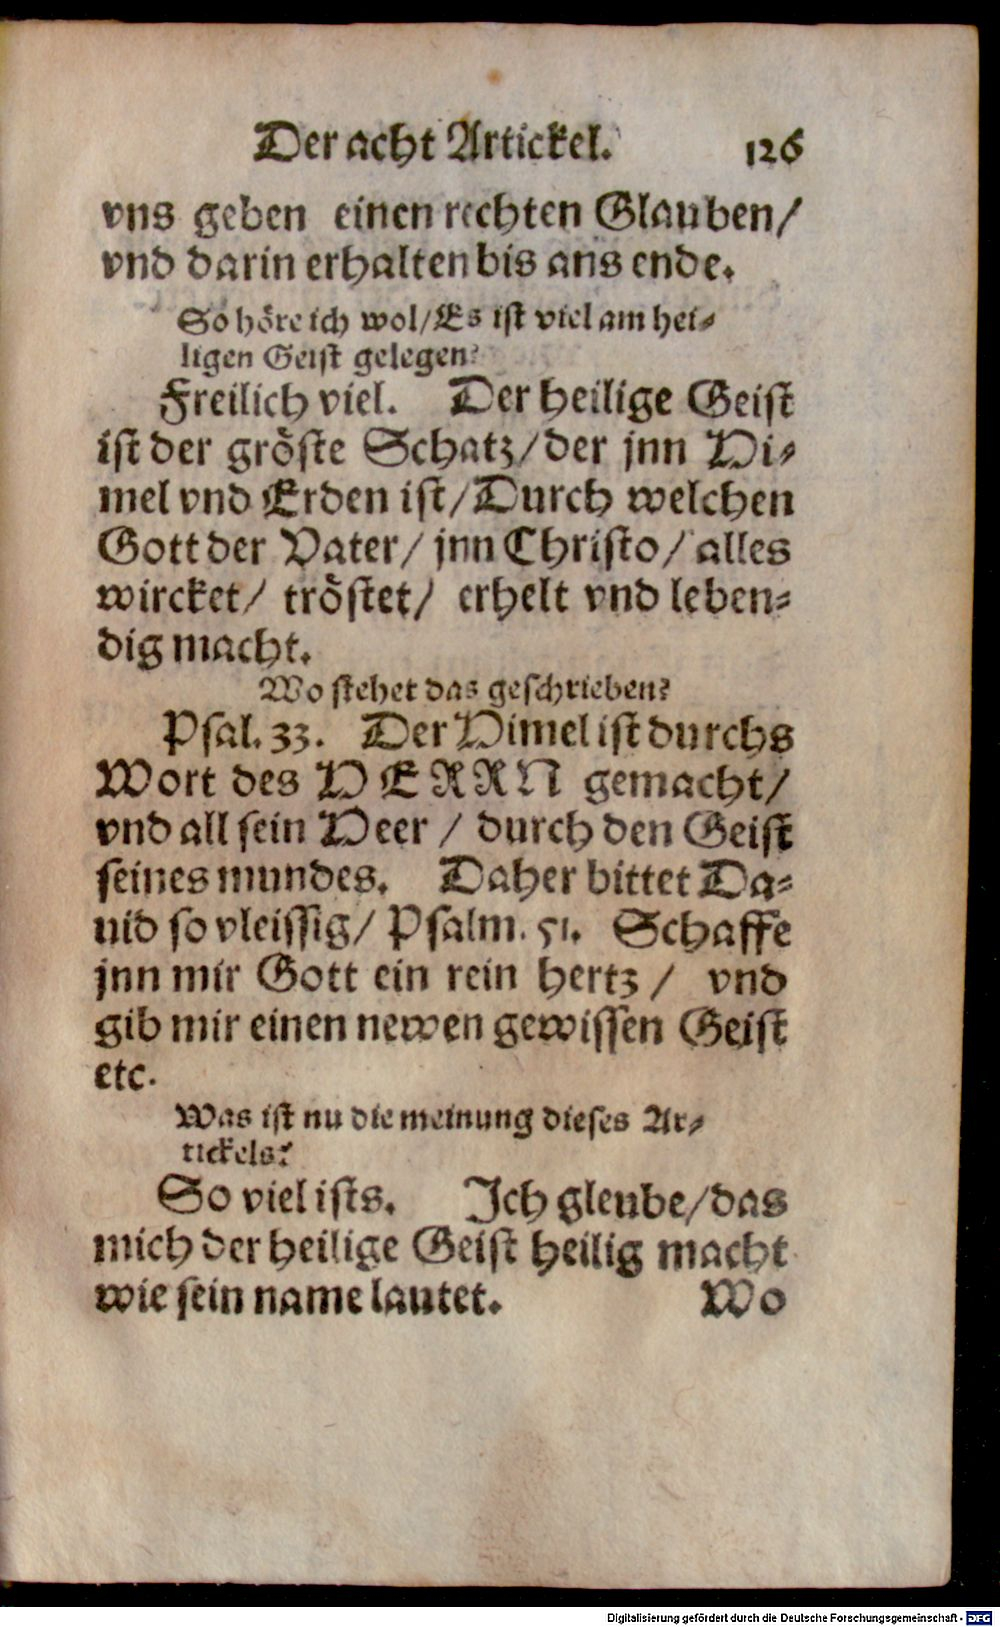 Der acht Artickel. 126
vns geben einen rechten Glauben/
vnd darin erhalten bis ans ende.
So höre ich wol/Es ist viel am hei-
ligen Geist gelegen?
Freilich viel. Der heilige Geist
ist der gröste Schatz/der jnn Hi-
mel vnd Erden ist/Durch welchen
Gott der Vater/ jnn Christo/ alles
wircket/ tröstet/ erhelt vnd leben-
dig macht.
Wo stehet das geschrieben?
Psal. 33. Der Himel ist durchs
Wort des HERRN gemacht/
vnd all sein Heer / durch den Geist
seines mundes. Daher bittet Da-
uid so vleissig/ Psalm. 51. Schaffe
jnn mir Gott ein rein hertz / vnd
gib mir einen newen gewissen Geist
etc.
Was ist nu die meinung dieses Ar-
tickels?
So viel ists. Ich gleube/das
mich der heilige Geist heilig macht
wie sein name lautet. Wo
Digitalisierung gefördert durch die Deutsche Forschungsgemeinschaft - DFG